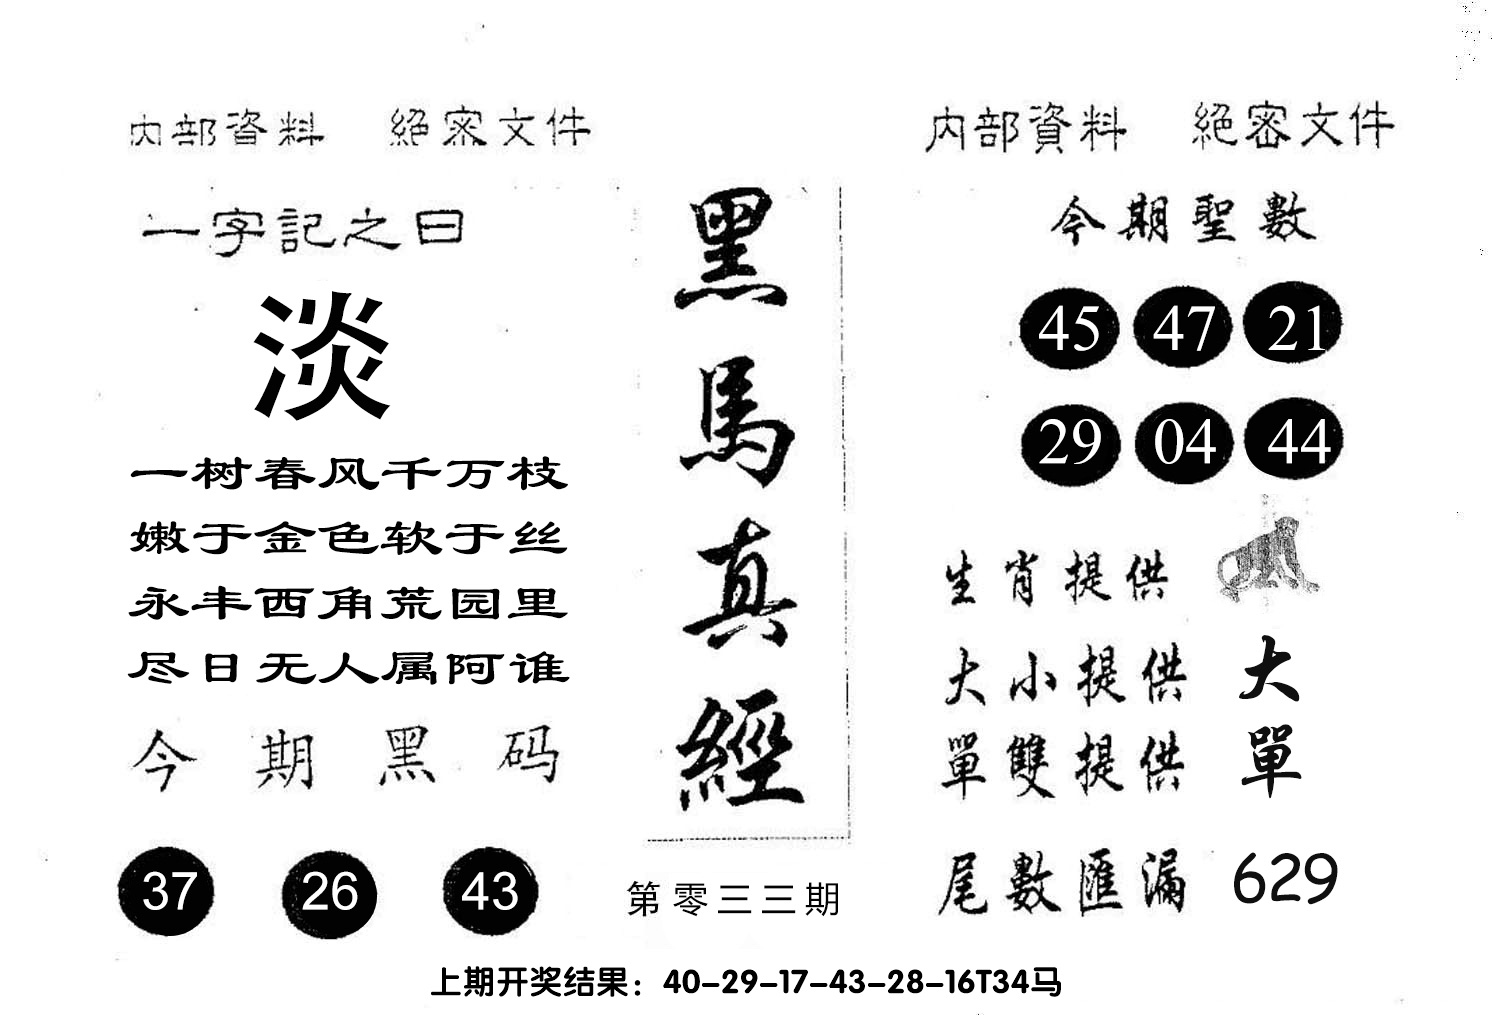 内部資料 絕密文件
一字記之曰
淡
一树春风千万枝
嫩于金色软于丝
永丰西角荒园里
尽日无人属阿谁
今期黑码
37 26 43
黑馬真經
第零三三期
内部資料 絕密文件
今期聖數
45 47 21
29 04 44
生肖提供
大小提供 大
單雙提供 單
尾數匯漏 629
上期开奖结果：40-29-17-43-28-16T34马